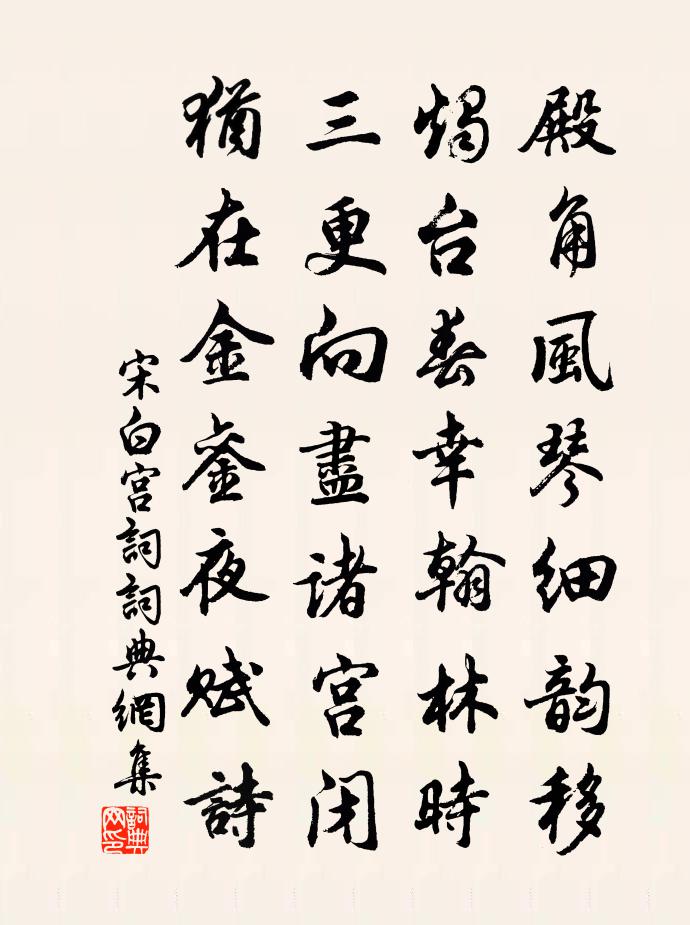 殿角風琴細韵移
燭台春幸翰林時
三更向盡諸宮闭
猶在金銮夜赋詩
宋白宫詞詞典網集
詞典网印